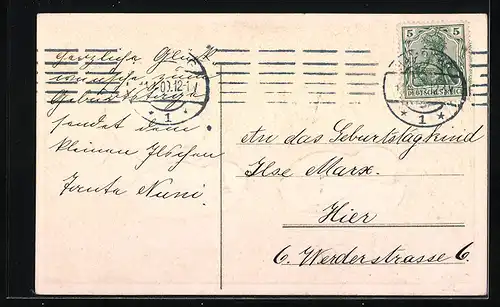 Herzliche Glück-
wünsche zum
Geburtstage
sendet dem
kleinen Ilschen
Tante Nuni.
5 5
DEUTSCHES REICH
.12-1
* 1 *
* 1 *
An das Geburtstagkind
Ilse Marx.
Hier
6. Werderstrasse 6.